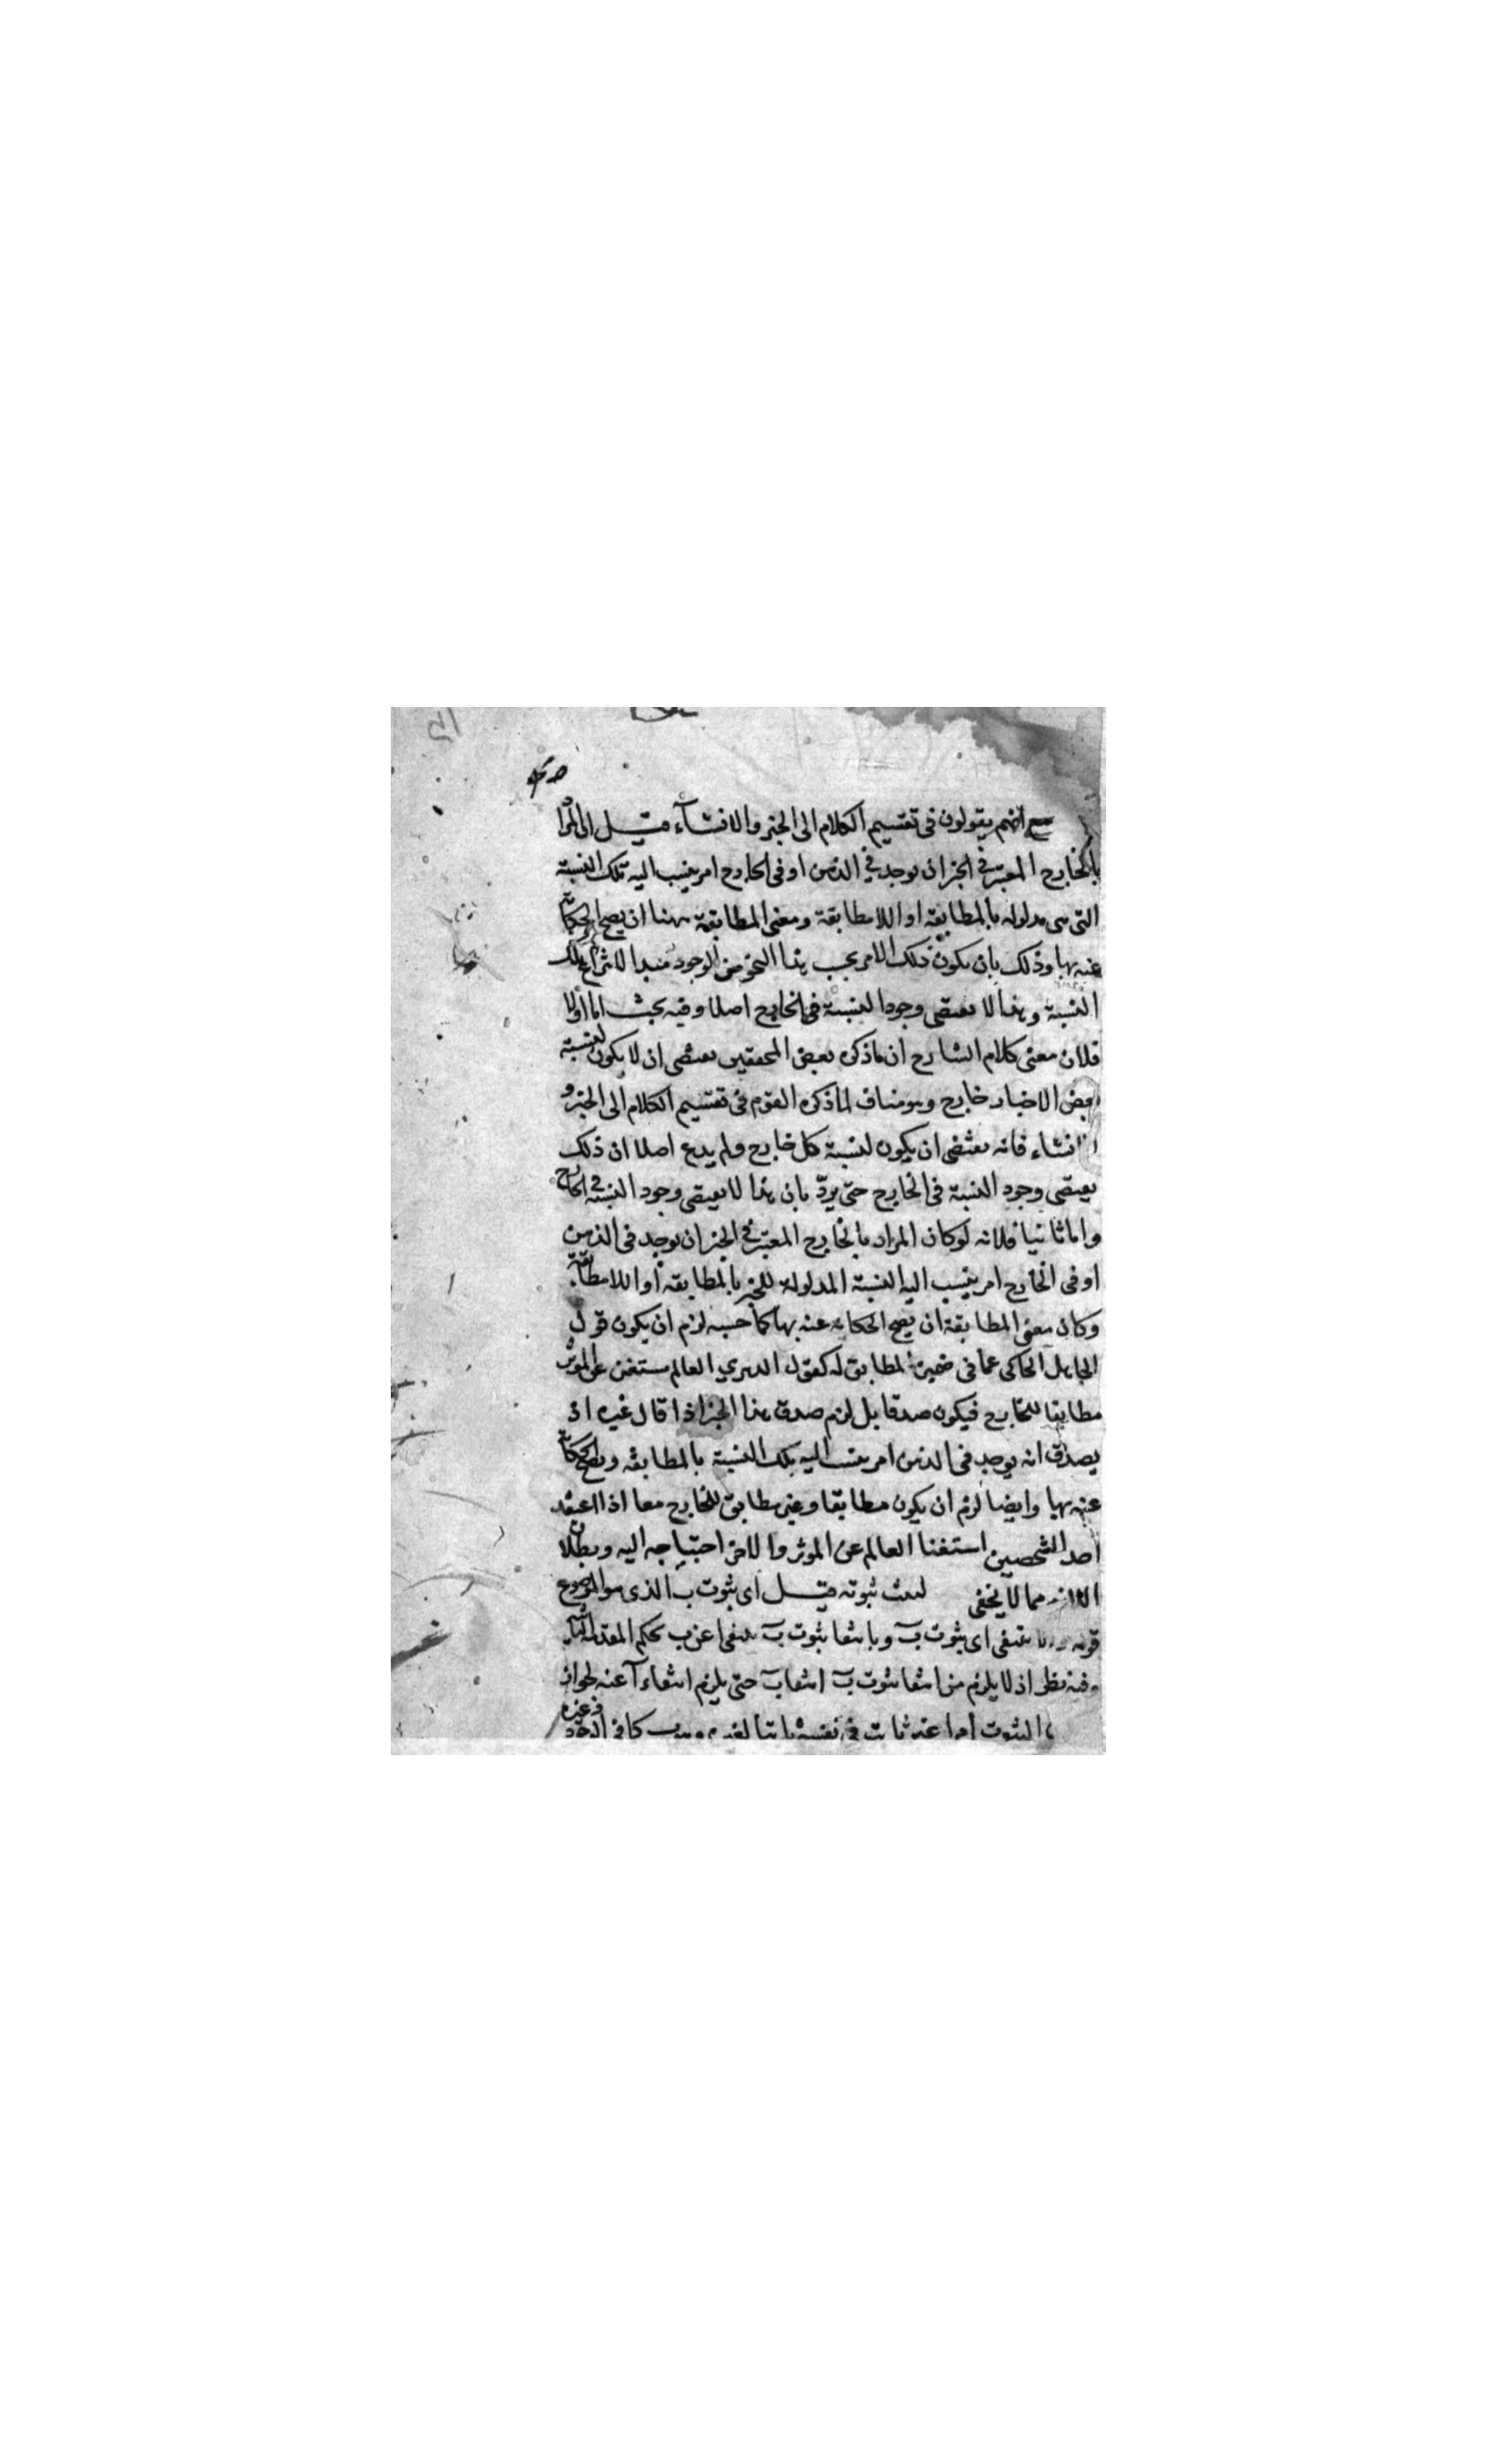 مع انهم يقولون فى تقسيم الكلام الى الخبر والانشاء قيل ان المراد
بالخارج المعتبر فى الخبر ان يوجد فى الذهن او فى الخارج امر ينسب اليه تلك النسبة
التى هى مدلوله بالمطابقة او اللامطابقة ومعنى المطابقة ههنا ان يصح الحكاية
عنه بها وذلك بان يكون ذلك الامر بحسب هذا النحو من الوجود مبدا لانتزاع تلك
النسبة وهذا لا يقتضى وجود النسبة فى الخارج اصلا وفيه بحث اما اولا
فلان معنى كلام الشارح ان ما ذكره بعض المحققين يقتضى ان لا يكون لنسبة
بعض الاخبار خارج وهو مناف لما ذكره القوم فى تقسيم الكلام الى الخبر و
الانشاء فانه يقتضى ان يكون لنسبة كل خارج ولم يدع اصلا ان ذلك
يقتضى وجود النسبة فى الخارج حتى يردّ بان هذا لا يقتضى وجود النسبة فى الخارج
واما ثانيا فلانه لو كان المراد بالخارج المعتبر فى الخبر ان يوجد فى الذهن
او فى الخارج امر ينسب اليه النسبة المدلولة للخبر بالمطابقة او اللامطابقة
وكان معنى المطابقة ان يصح الحكاية عنه بها كما حسبه لزم ان يكون قول
الجاهل الحاكى عما فى ضميره المطابق له كقول الدهري العالم مستغن عن الموثر
مطابقا للخارج فيكون صدقا بل لزم صدق هذا الخبر اذا قال غيره اذ
يصدق انه يوجد فى الذهن امر ينسب اليه تلك النسبة بالمطابقة ويصح الحكاية
عنه بها وايضا لزم ان يكون مطابقا وغير مطابق للخارج معا اذا اعتقد
احد الشخصين استغنا العالم عن الموثر والاخر احتياجه اليه وبطلان
مما لا يخفى ثبوته قيل اى ثبوت ب الذى هو الموضوع
قوله ينتفى اى ثبوت ب وبانتفا ثبوت ب ينتفى ا عن ب بحكم المقدمة
وفيه نظر اذ لا يلزم من انتفا ثبوت ب انتفا ب حتى يلزم انتفاء ا عنه لجواز